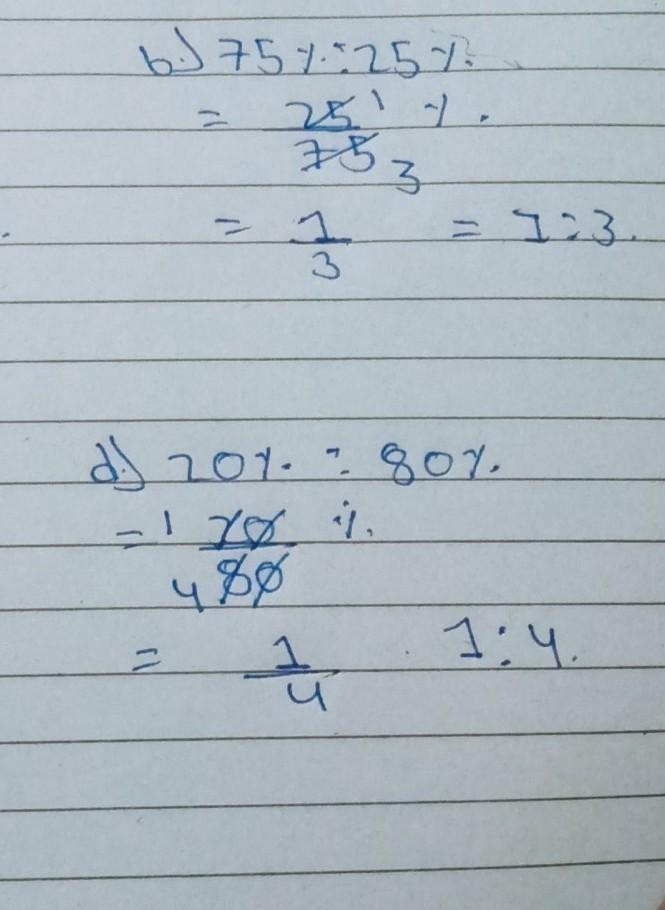 b.) 75%:25%
= 25 1 %.
75 3
= 1/3 = 1:3.
d.) 20%. : 80%.
= 1 20 %.
4 80
= 1/4 . 1:4.